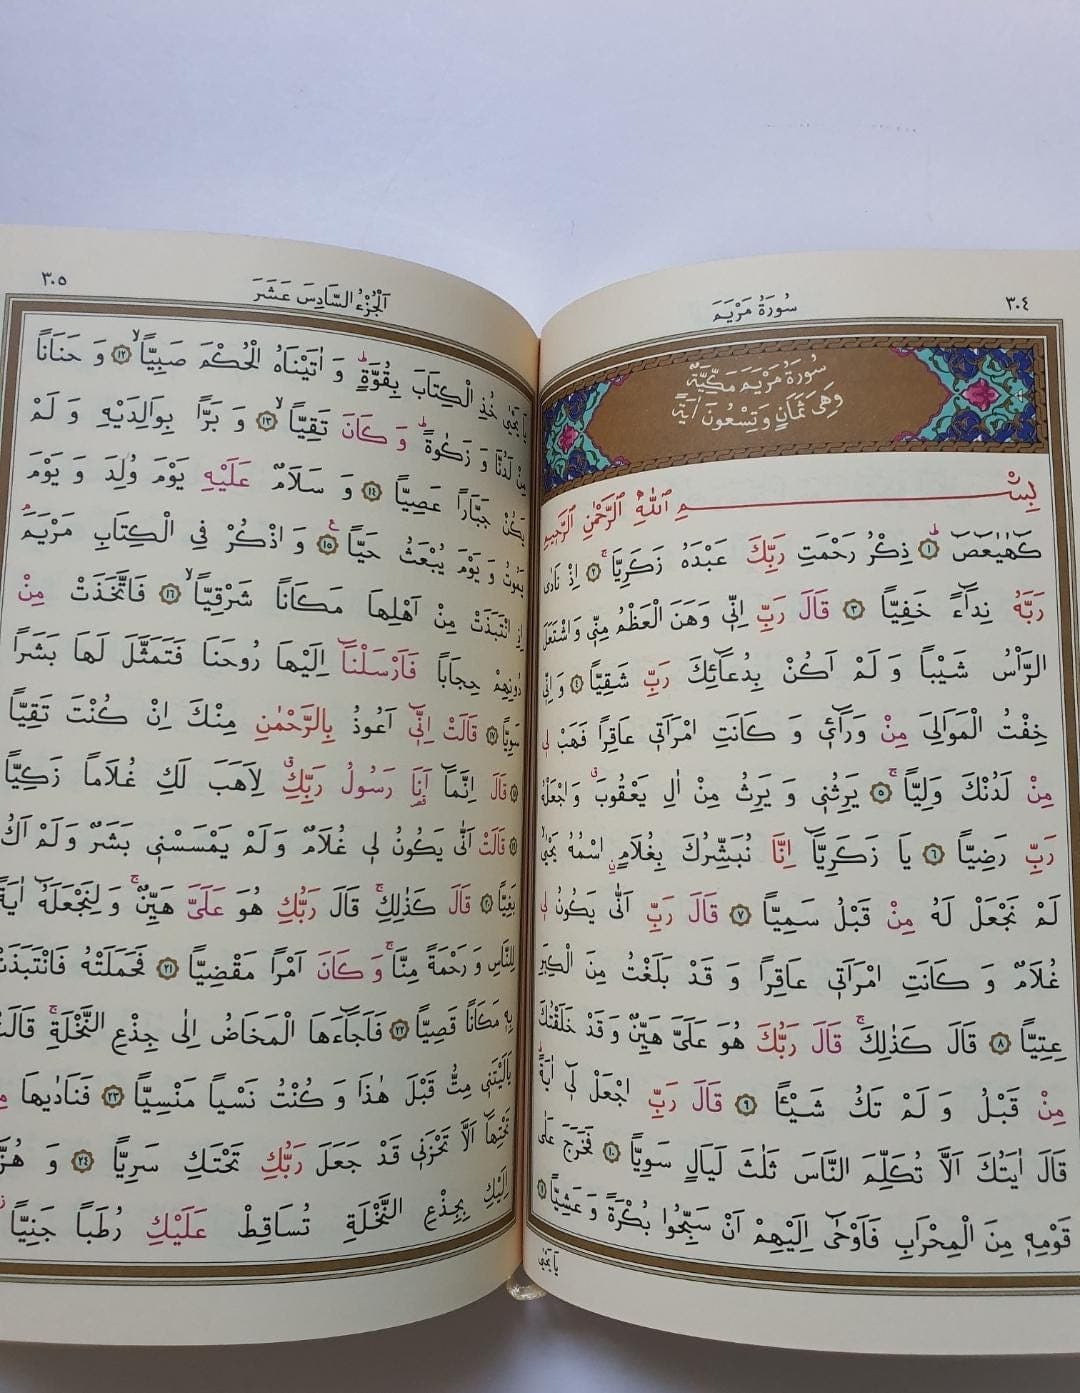 سُورَةُ مَرْيَمَ
٣٠٤
سُورَةُ مَرْيَمَ مَكِّيَّةٌ
وَهِىَ ثَمَانٍ وَتِسْعُونَ اٰيَةً
بِسْمِ اللّٰهِ الرَّحْمٰنِ الرَّحِيمِ
كٓهٰيٰعٓصٓ ﴿١﴾ ذِكْرُ رَحْمَتِ رَبِّكَ عَبْدَهُ زَكَرِيَّا ﴿٢﴾ اِذْ نَادٰى
رَبَّهُ نِدَٓاءً خَفِيًّا ﴿٣﴾ قَالَ رَبِّ اِنّ۪ى وَهَنَ الْعَظْمُ مِنّ۪ى وَاشْتَعَلَ
الرَّاْسُ شَيْبًا وَ لَمْ اَكُنْ بِدُعَٓائِكَ رَبِّ شَقِيًّا ﴿٤﴾ وَ اِنّ۪ى
خِفْتُ الْمَوَالِىَ مِنْ وَرَٓائ۪ى وَ كَانَتِ امْرَاَت۪ى عَاقِرًا فَهَبْ ل۪ى
مِنْ لَدُنْكَ وَلِيًّا ﴿٥﴾ يَرِثُن۪ى وَ يَرِثُ مِنْ اٰلِ يَعْقُوبَ وَاجْعَلْهُ
رَبِّ رَضِيًّا ﴿٦﴾ يَا زَكَرِيَّٓا اِنَّا نُبَشِّرُكَ بِغُلَامٍ اسْمُهُ يَحْيٰى
لَمْ نَجْعَلْ لَهُ مِنْ قَبْلُ سَمِيًّا ﴿٧﴾ قَالَ رَبِّ اَنّٰى يَكُونُ ل۪ى
غُلَامٌ وَ كَانَتِ امْرَاَت۪ى عَاقِرًا وَ قَدْ بَلَغْتُ مِنَ الْكِبَرِ
عِتِيًّا ﴿٨﴾ قَالَ كَذٰلِكَ قَالَ رَبُّكَ هُوَ عَلَىَّ هَيِّنٌ وَ قَدْ خَلَقْتُكَ
مِنْ قَبْلُ وَ لَمْ تَكُ شَيْـًٔا ﴿٩﴾ قَالَ رَبِّ اجْعَلْ ل۪ٓى اٰيَةً
قَالَ اٰيَتُكَ اَلَّا تُكَلِّمَ النَّاسَ ثَلٰثَ لَيَالٍ سَوِيًّا ﴿١٠﴾ فَخَرَجَ عَلٰى
قَوْمِه۪ مِنَ الْمِحْرَابِ فَاَوْحٰٓى اِلَيْهِمْ اَنْ سَبِّحُوا بُكْرَةً وَ عَشِيًّا ﴿١١﴾
يَا يَحْيٰى
اَلْجُزْءُ السَّادِسَ عَشَرَ
٣٠٥
يَا يَحْيٰى خُذِ الْكِتَابَ بِقُوَّةٍ وَ اٰتَيْنَاهُ الْحُكْمَ صَبِيًّا ﴿١٢﴾ وَ حَنَانًا
مِنْ لَدُنَّا وَ زَكٰوةً وَ كَانَ تَقِيًّا ﴿١٣﴾ وَ بَرًّا بِوَالِدَيْهِ وَ لَمْ
يَكُنْ جَبَّارًا عَصِيًّا ﴿١٤﴾ وَ سَلَامٌ عَلَيْهِ يَوْمَ وُلِدَ وَ يَوْمَ
يَمُوتُ وَ يَوْمَ يُبْعَثُ حَيًّا ﴿١٥﴾ وَ اذْكُرْ فِى الْكِتَابِ مَرْيَمَ
اِذِ انْتَبَذَتْ مِنْ اَهْلِهَا مَكَانًا شَرْقِيًّا ﴿١٦﴾ فَاتَّخَذَتْ مِنْ
دُونِهِمْ حِجَابًا فَاَرْسَلْنَٓا اِلَيْهَا رُوحَنَا فَتَمَثَّلَ لَهَا بَشَرًا
سَوِيًّا ﴿١٧﴾ قَالَتْ اِنّ۪ٓى اَعُوذُ بِالرَّحْمٰنِ مِنْكَ اِنْ كُنْتَ تَقِيًّا
﴿١٨﴾ قَالَ اِنَّمَٓا اَنَا رَسُولُ رَبِّكِ لِاَهَبَ لَكِ غُلَامًا زَكِيًّا
﴿١٩﴾ قَالَتْ اَنّٰى يَكُونُ ل۪ى غُلَامٌ وَ لَمْ يَمْسَسْن۪ى بَشَرٌ وَ لَمْ اَكُ
بَغِيًّا ﴿٢٠﴾ قَالَ كَذٰلِكِ قَالَ رَبُّكِ هُوَ عَلَىَّ هَيِّنٌ وَ لِنَجْعَلَهُٓ اٰيَةً
لِلنَّاسِ وَ رَحْمَةً مِنَّا وَ كَانَ اَمْرًا مَقْضِيًّا ﴿٢١﴾ فَحَمَلَتْهُ فَانْتَبَذَتْ
بِه۪ مَكَانًا قَصِيًّا ﴿٢٢﴾ فَاَجَٓاءَهَا الْمَخَاضُ اِلٰى جِذْعِ النَّخْلَةِ قَالَتْ
يَالَيْتَن۪ى مِتُّ قَبْلَ هٰذَا وَ كُنْتُ نَسْيًا مَنْسِيًّا ﴿٢٣﴾ فَنَادٰيهَا
تَحْتِهَٓا اَلَّا تَحْزَن۪ى قَدْ جَعَلَ رَبُّكِ تَحْتَكِ سَرِيًّا ﴿٢٤﴾ وَ هُزّ۪ى
اِلَيْكِ بِجِذْعِ النَّخْلَةِ تُسَاقِطْ عَلَيْكِ رُطَبًا جَنِيًّا